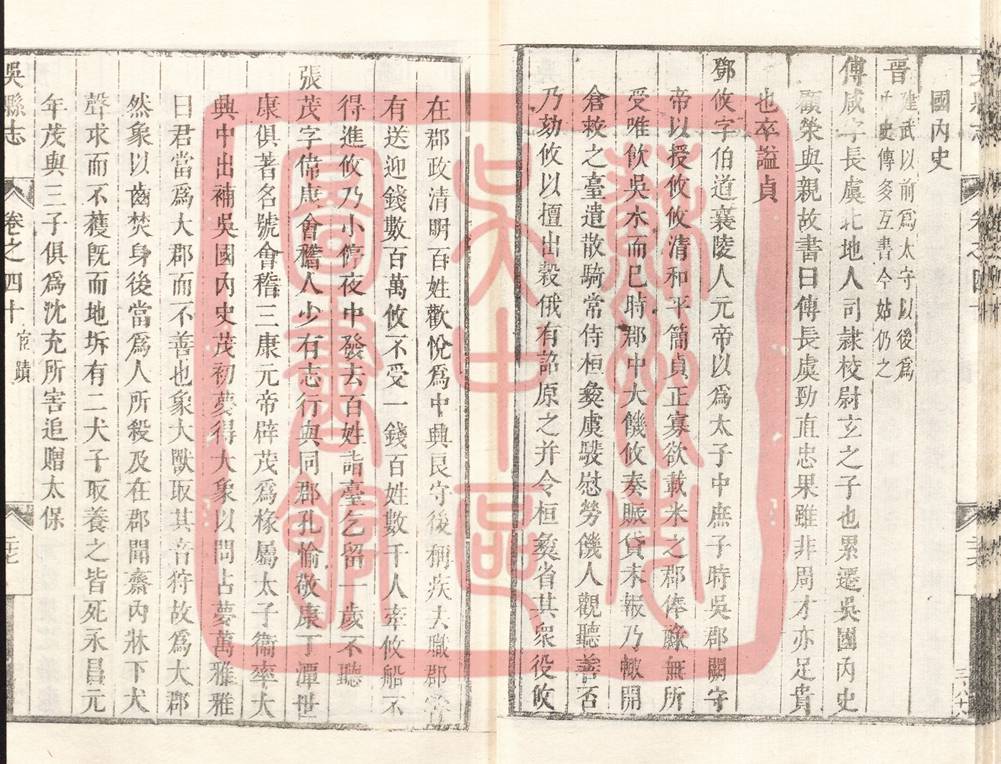 國內史
晉 建武以前爲太守以後爲
史傳多互書今姑仍之
傅咸字長虞北地人司隷校尉玄之子也累遷吳國內史
顧榮與親故書曰傅長虞勁直忠果雖非周才亦足貴
也卒謚貞
鄧攸字伯道襄陵人元帝以爲太子中庶子時吳郡闕守
帝以授攸攸清和平簡貞正寡欲載米之郡俸祿無所
受唯飲吳水而已時郡中大饑攸奏賑貸未報乃輒開
倉救之臺遣散騎常侍桓彝虞𩦎慰勞饑人觀聽善否
乃劾攸以擅出穀俄有詔原之并令桓彝省其衆役攸
在郡政清明百姓歡悅爲中興良守後稱疾去職郡常
有送迎錢數百萬攸不受一錢百姓數千人牽攸船不
得進攸乃小停夜中發去百姓詣臺乞留一歲不聽
張茂字偉康會稽人少有志行與同郡孔愉敬康丁潭世
康俱著名號會稽三康元帝辟茂爲掾屬太子衞率大
興中出補吳國內史茂初夢得大象以問占夢萬雅雅
曰君當爲大郡而不善也象大獸取其音狩故爲大郡
然象以齒焚身後當爲人所殺及在郡聞齋內牀下犬
聲求而不獲旣而地坼有二犬子取養之皆死永昌元
年茂與三子俱爲沈充所害追贈太保
吳縣志
卷之四十 宦蹟
蘇州市
吳中區
圖書館